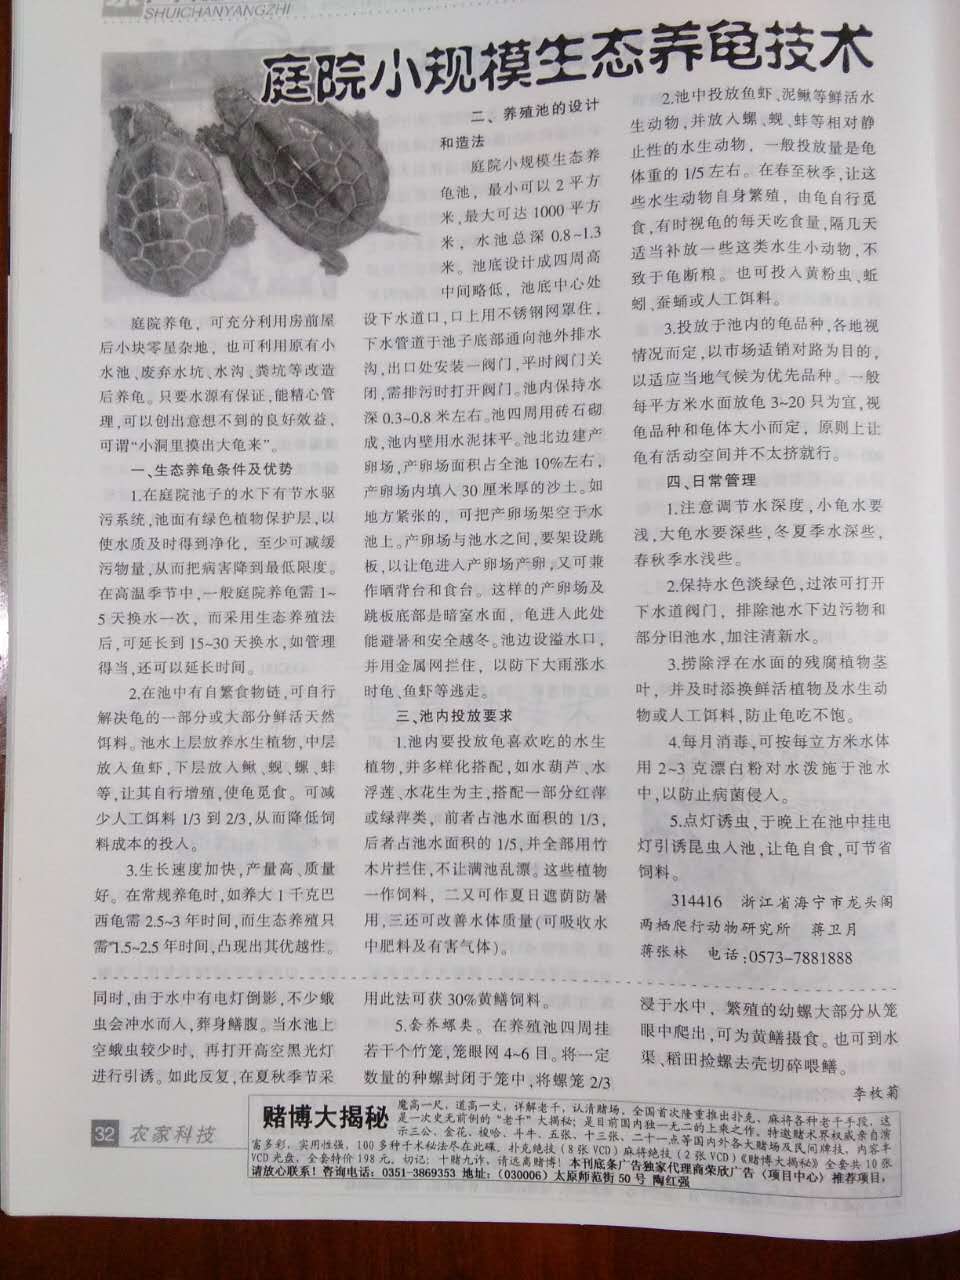 SHUICHANYANGZHI
庭院小规模生态养龟技术
庭院养龟，可充分利用房前屋
后小块零星杂地，也可利用原有小
水池、废弃水坑、水沟、粪坑等改造
后养龟。只要水源有保证,能精心管
理,可以创出意想不到的良好效益，
可谓“小洞里摸出大龟来”。
一、生态养龟条件及优势
1.在庭院池子的水下有节水驱
污系统,池面有绿色植物保护层,以
使水质及时得到净化，至少可减缓
污物量,从而把病害降到最低限度。
在高温季节中,一般庭院养龟需1~
5天换水一次，而采用生态养殖法
后,可延长到15~30天换水,如管理
得当,还可以延长时间。
2.在池中有自繁食物链,可自行
解决龟的一部分或大部分鲜活天然
饵料。池水上层放养水生植物,中层
放入鱼虾,下层放入鳅、蚬、螺、蚌
等,让其自行增殖,使龟觅食。可减
少人工饵料1/3到2/3,从而降低饲
料成本的投入。
3.生长速度加快,产量高、质量
好。在常规养龟时,如养大1千克巴
西龟需2.5~3年时间,而生态养殖只
需1.5~2.5年时间,凸现出其优越性。
二、养殖池的设计
和造法
庭院小规模生态养
龟池，最小可以2平方
米,最大可达1000平方
米，水池总深0.8~1.3
米。池底设计成四周高
中间略低，池底中心处
设下水道口,口上用不锈钢网罩住，
下水管道于池子底部通向池外排水
沟,出口处安装一阀门,平时阀门关
闭,需排污时打开阀门。池内保持水
深0.3~0.8米左右。池四周用砖石砌
成,池内壁用水泥抹平。池北边建产
卵场,产卵场面积占全池10%左右，
产卵场内填入30厘米厚的沙土。如
地方紧张的，可把产卵场架空于水
池上。产卵场与池水之间,要架设跳
板,以让龟进入产卵场产卵,又可兼
作晒背台和食台。这样的产卵场及
跳板底部是暗室水面，龟进入此处
能避暑和安全越冬。池边设溢水口，
并用金属网拦住，以防下大雨涨水
时龟、鱼虾等逃走。
三、池内投放要求
1.池内要投放龟喜欢吃的水生
植物,并多样化搭配,如水葫芦、水
浮莲、水花生为主,搭配一部分红萍
或绿萍类，前者占池水面积的1/3，
后者占池水面积的1/5,并全部用竹
木片拦住,不让满池乱漂。这些植物
一作饲料，二又可作夏日遮荫防暑
用,三还可改善水体质量(可吸收水
中肥料及有害气体)。
2.池中投放鱼虾、泥鳅等鲜活水
生动物,并放入螺、蚬、蚌等相对静
止性的水生动物，一般投放量是龟
体重的1/5左右。在春至秋季,让这
些水生动物自身繁殖，由龟自行觅
食,有时视龟的每天吃食量,隔几天
适当补放一些这类水生小动物，不
致于龟断粮。也可投入黄粉虫、蚯
蚓、蚕蛹或人工饵料。
3.投放于池内的龟品种,各地视
情况而定,以市场适销对路为目的，
以适应当地气候为优先品种。一般
每平方米水面放龟3~20只为宜,视
龟品种和龟体大小而定，原则上让
龟有活动空间并不太挤就行。
四、日常管理
1.注意调节水深度,小龟水要
浅,大龟水要深些,冬夏季水深些，
春秋季水浅些。
2.保持水色淡绿色,过浓可打开
下水道阀门，排除池水下边污物和
部分旧池水,加注清新水。
3.捞除浮在水面的残腐植物茎
叶，并及时添换鲜活植物及水生动
物或人工饵料,防止龟吃不饱。
4.每月消毒,可按每立方米水体
用2~3克漂白粉对水泼施于池水
中,以防止病菌侵入。
5.点灯诱虫,于晚上在池中挂电
灯引诱昆虫入池,让龟自食,可节省
饲料。
314416 浙江省海宁市龙头阁
两栖爬行动物研究所 蒋卫月
蒋张林 电话:0573-7881888
同时,由于水中有电灯倒影,不少蛾
虫会冲水而入,葬身鳝腹。当水池上
空蛾虫较少时，再打开高空黑光灯
进行引诱。如此反复,在夏秋季节采
用此法可获30%黄鳝饲料。
5.套养螺类。在养殖池四周挂
若干个竹笼,笼眼网4~6目。将一定
数量的种螺封闭于笼中,将螺笼2/3
浸于水中，繁殖的幼螺大部分从笼
眼中爬出,可为黄鳝摄食。也可到水
渠、稻田捡螺去壳切碎喂鳝。
李枚菊
32 农家科技
赌博大揭秘
魔高一尺，道高一丈，详解老千，认清赌场，全国首次隆重推出扑克、麻将各种老千手段，这
是一次史无前例的“老千”大揭秘；是目前国内独一无二的上乘之作。特邀赌术界权威亲自演
示三公、金花、梭哈、斗牛、五张、十三张、二十一点等国内外各大赌场及民间牌技，内容丰
富多彩，实用性强，100多种千术秘法尽在此碟。扑克绝技(8张VCD)麻将绝技(2张VCD)《赌博大揭秘》全套共10张
VCD光盘，全套特价198元。切记：十赌九诈，请远离赌博！本刊底条广告独家代理商荣欣广告〈项目中心〉推荐项目，
请放心联系！咨询电话：0351-3869353 地址：(030006)太原师范街50号 陶红强